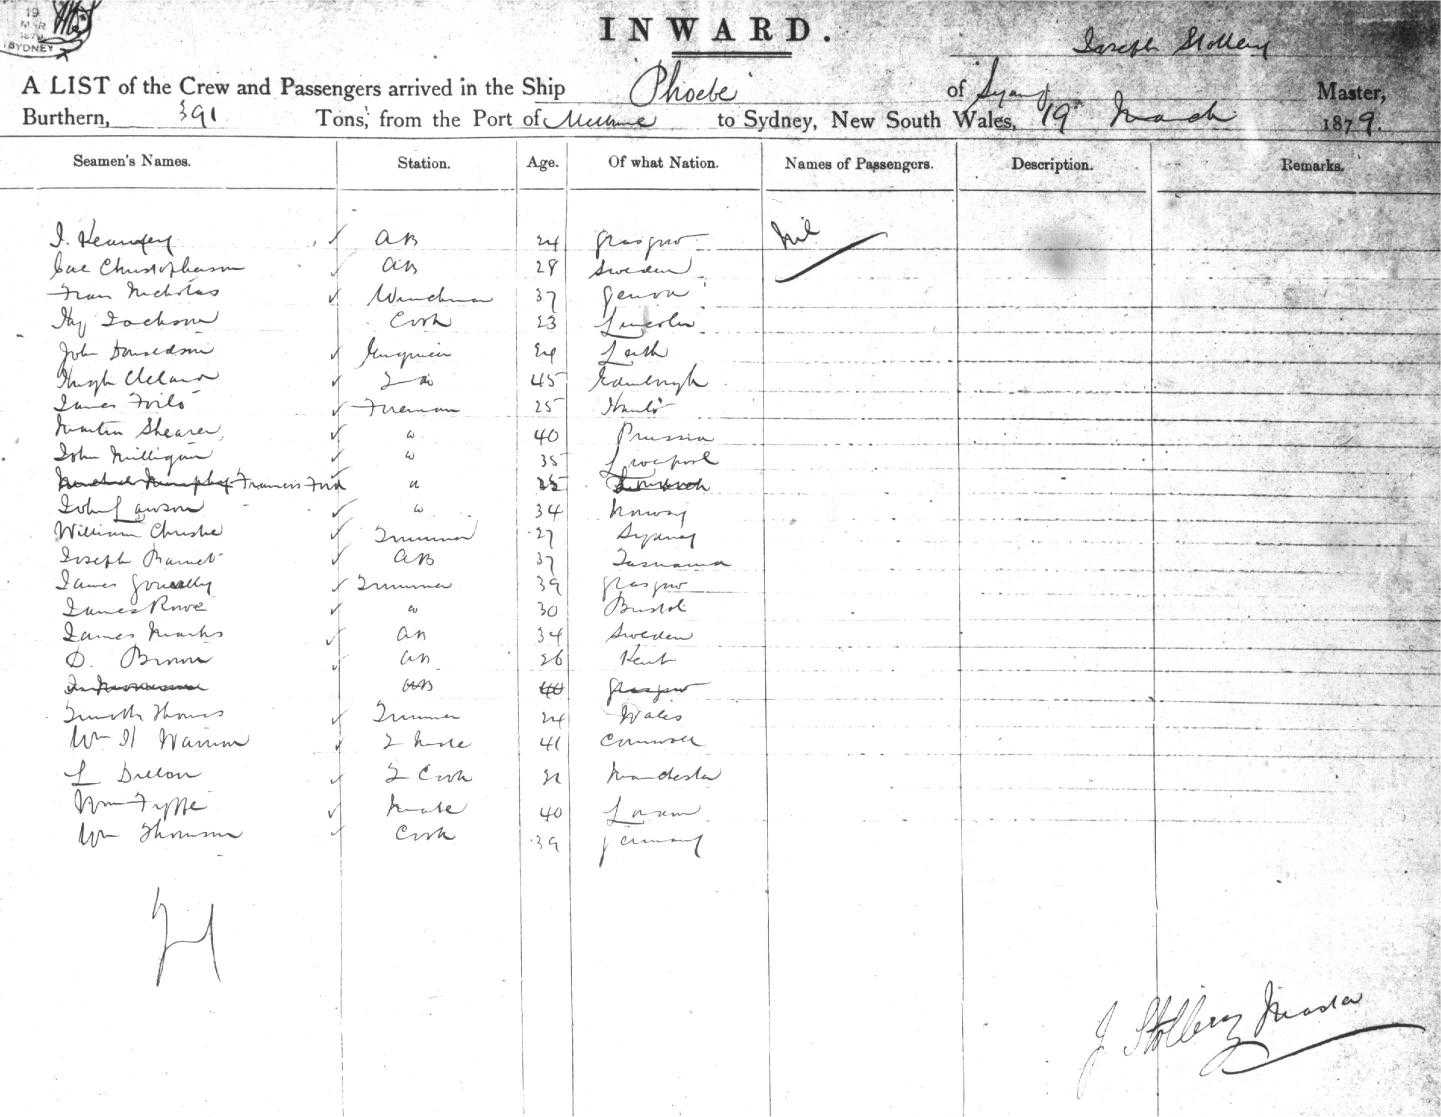 19
MAR
1879
SYDNEY
INWARD.
Joseph Stolbery
A LIST of the Crew and Passengers arrived in the Ship Phoebe of Sydney Master,
Burthern, 391 Tons, from the Port of to Sydney, New South Wales, 19th March 1879.
Seamen's Names. Station. Age. Of what Nation. Names of Passengers. Description. Remarks.
AB 24 Glasgow Nil
Christopherson AB 28 Sweden
Fran Nicholas 37 Genoa
Hy Jackson Cook 23 Lincoln
John Donaldson 24 Leith
Hugh 2 45 Edinburgh
James Fireman 25
Martin Shearer 40 Prussia
John Milligan 35 Liverpool
Francis Ford 25
John Lawson 34 Norway
William Christie Trimmer 27 Sydney
Joseph AB 37 Tasmania
James Trimmer 39 Glasgow
James Rowe 30 Bristol
James Marks AB 34 Sweden
D. Brown AB 26 Kent
AB 40 Glasgow
Timothy Thomas Trimmer 24 Wales
Wm H 2 Mate 41 Cornwall
L Dillon 2 Cook Manchester
Wm Fyffe Mate 40
Wm Thomson Cook 39 Germany
J Stolbery Master